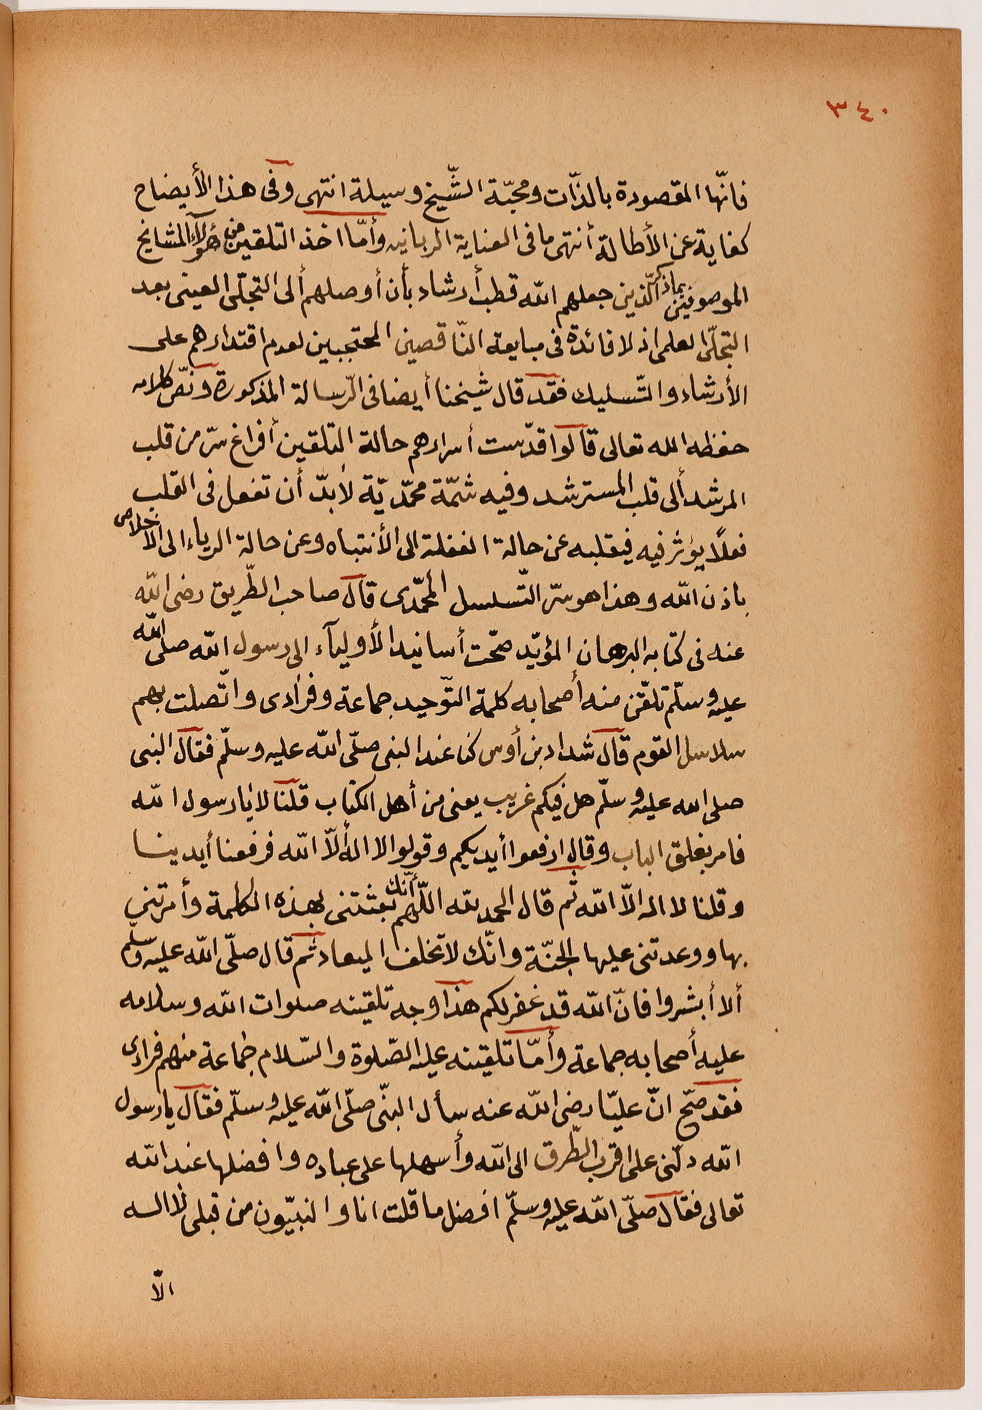 ٣٤٠
فانّها المقصودة بالذّات ومحبّة الشّيخ وسيلة انتهى وفى هذا الأيضاح
كفاية عن الأطالة أنتهى ما فى العناية الربانيه وأمّا اخذ التلقين من هؤلآء المشايخ
الموصوفين بما ذكر الّذين جعلهم الله قطب أرشاد بأن أوصلهم ألى التجلّى العينى بعد
التجلّى العلمى اذ لا فائدة فى مبايعة النّاقصين المحتجبين لعدم اقتدارهم على
الأرشاد والتّسليك فقد قال شيخنا أيضا فى الرّسالة المذكورة ونصّ كلامه
حفظه الله تعالى قالوا قدّست أسرارهم حالة التلقين أفراغ سرّ من قلب
المرشد ألى قلب المسترشد وفيه شمّة محمّديّة لأبدّ أن تفعل فى القلب
فعلًا يؤثر فيه فيقلبه عن حالة الغفلة الى الأنتباه وعن حالة الرياء الى الأخلاص
باذن الله وهذا هو سرّ التّسلسل المحمّدى قال صاحب الطّريق رضى الله
عنه فى كتابه البرهان المؤيّد صحّت أسانيد الأوليآء الى رسول الله صلى الله
عليه وسلّم تلقّن منه أصحابه كلمة التّوحيد جماعة وفرادى واتّصلت بهم
سلاسل القوم قال شداد بن أوس كنا عند النبى صلّى الله عليه وسلّم فقال النبى
صلى الله عليه وسلّم هل فيكم غريب يعنى من أهل الكتاب قلنا لا يا رسول الله
فامر بغلق الباب وقال ارفعوا أيديكم وقولوا لا اله ألّا الله فرفعنا أيدينا
وقلنا لا اله الّا الله ثم قال الحمد لله اللّهم أنّك بعثتنى بهذه الكلمة وأمرتنى
بها ووعدتنى عليها الجنّة وانّك لا تخلف الميعاد ثم قال صلّى الله عليه وسلّم
ألا أبشروا فانّ الله قد غفر لكم هذا وجه تلقينه صلوات الله وسلامه
عليه أصحابه جماعة وأمّا تلقينه عليه الصّلوة والسّلام جماعة منهم فرادى
فقد صحّ انّ عليّا رضى الله عنه سأل النبّى صلّى الله عليه وسلّم فقال يا رسول
الله دلّنى على اقرب الطّرق الى الله وأسهلها على عباده وافضلها عند الله
تعالى فقال صلّى الله عليه وسلّم افضل ما قلت انا والنبيّون من قبلى لا اله
الّا